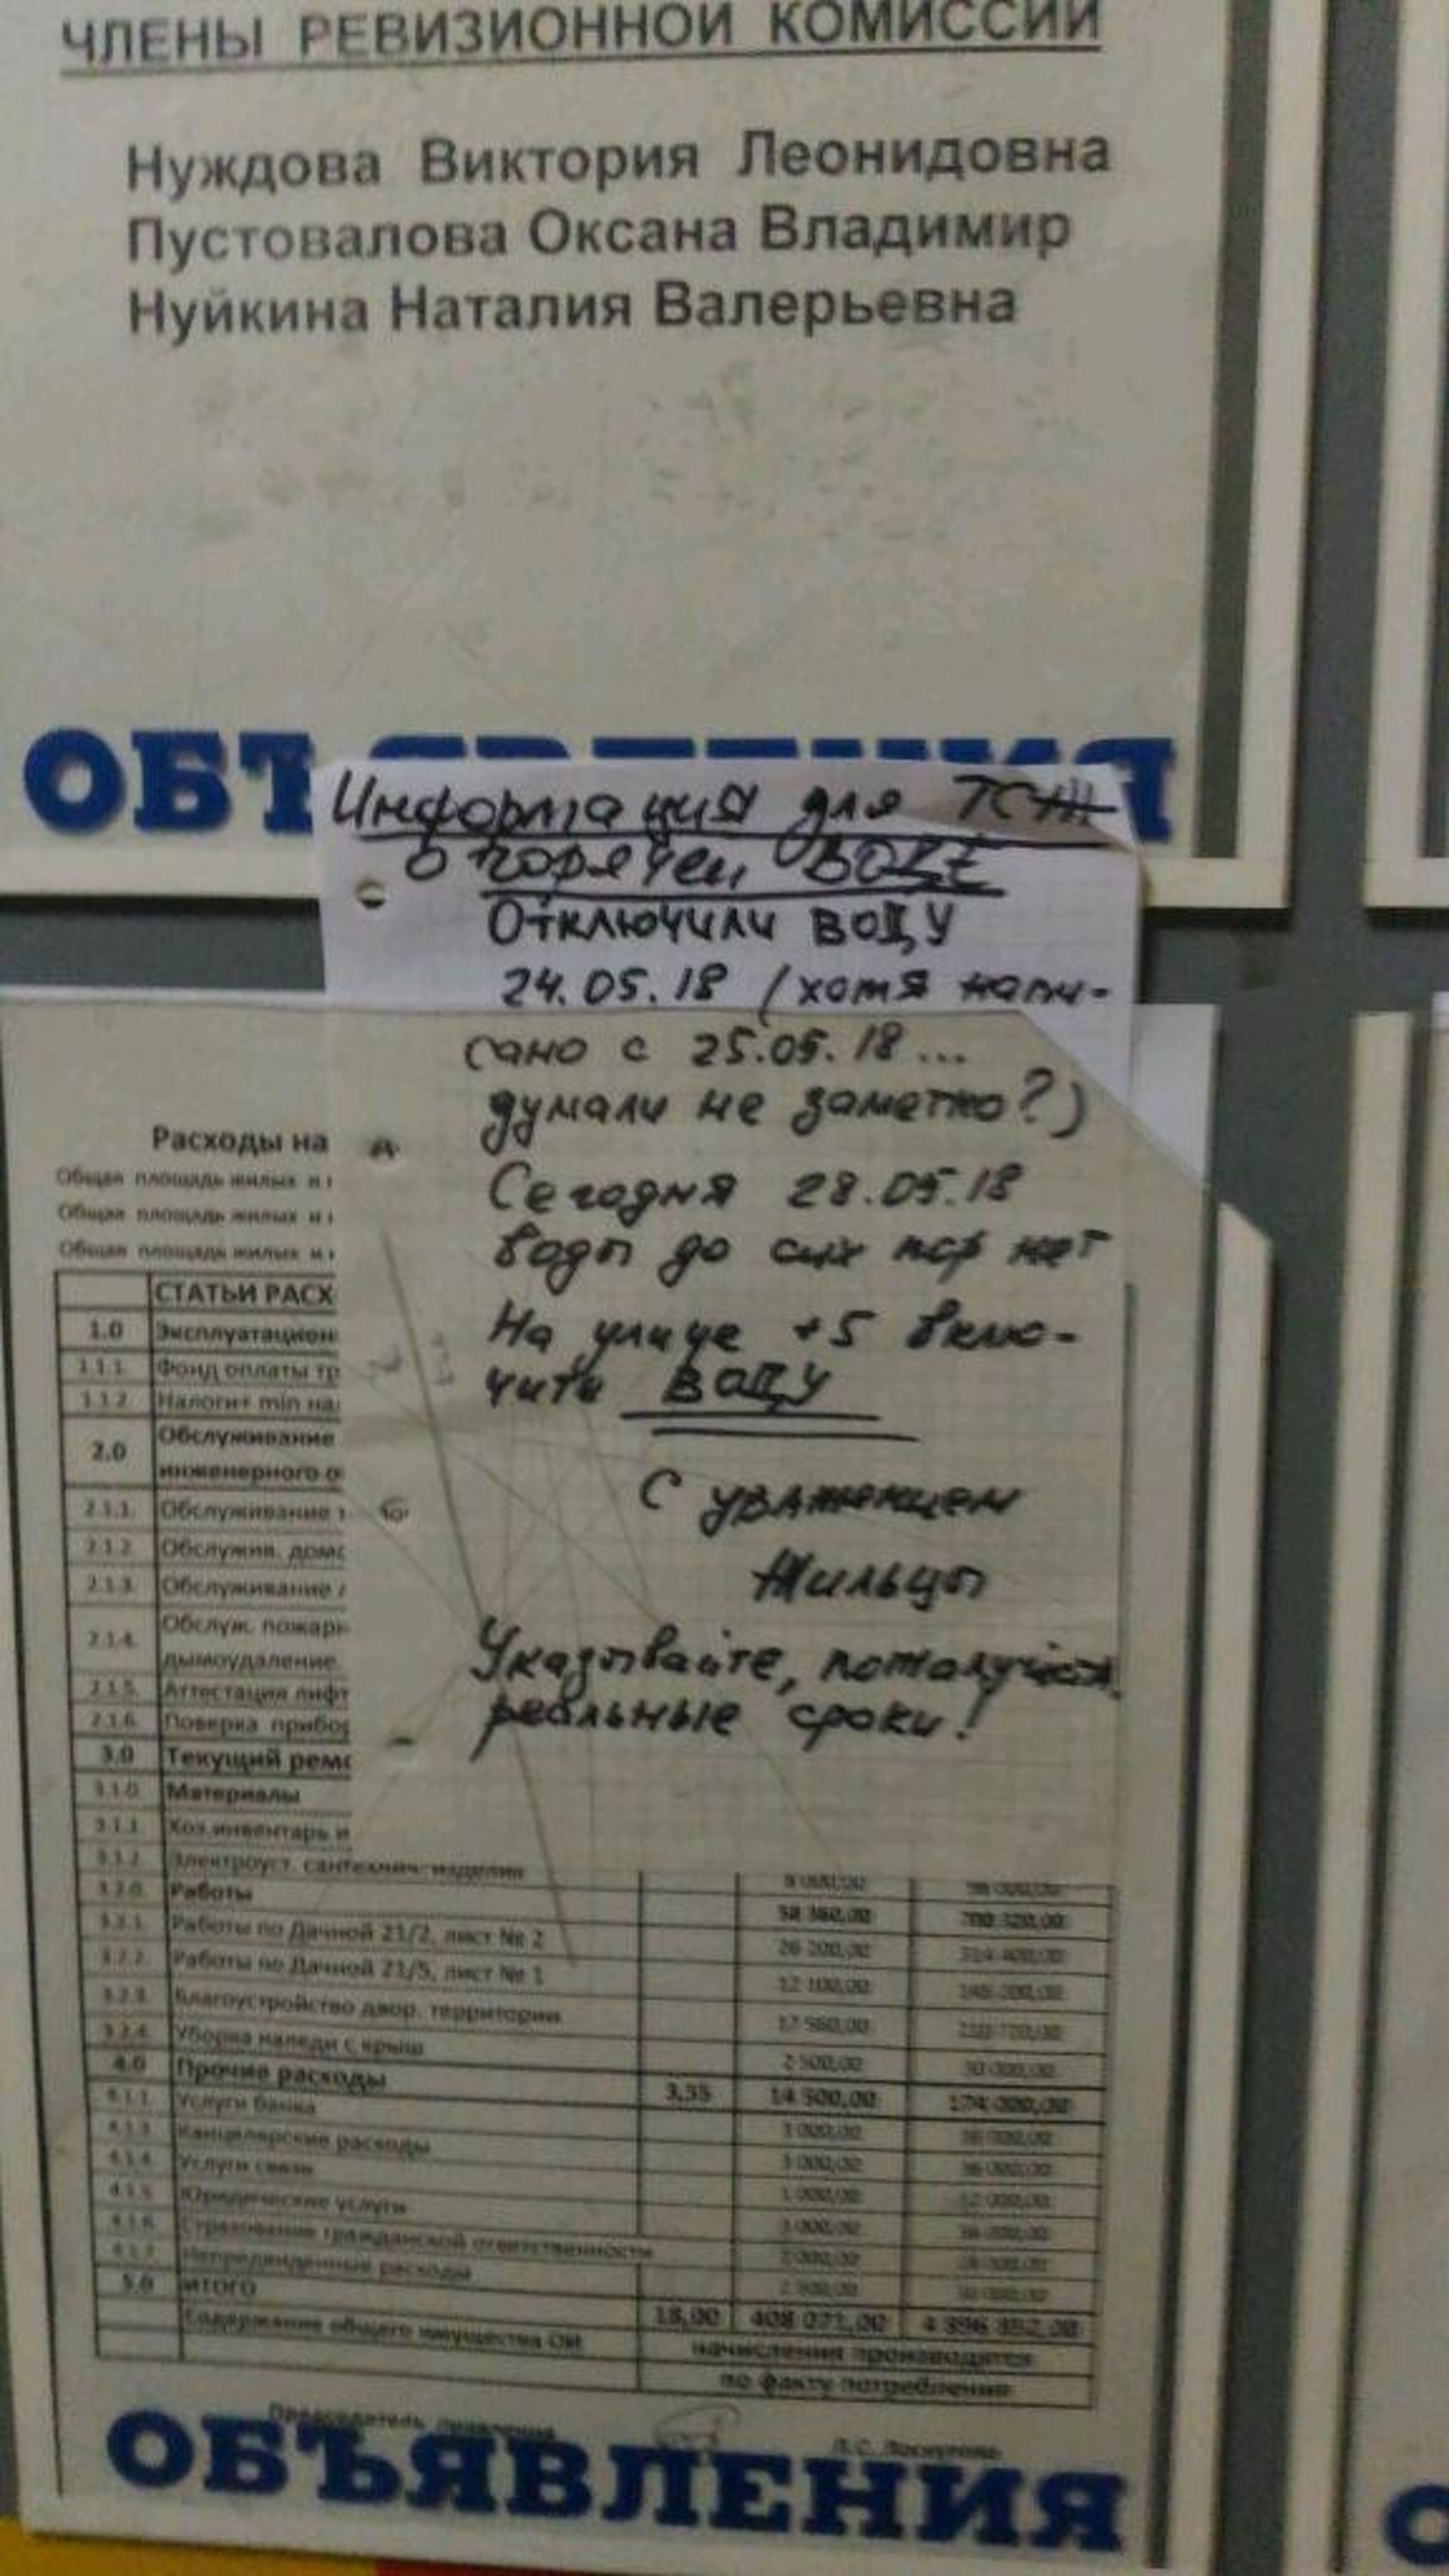 ЧЛЕНЫ РЕВИЗИОННОЙ КОМИССИИ
Нуждова Виктория Леонидовна
Пустовалова Оксана Владимир
Нуйкина Наталия Валерьевна
ОБЪЯВЛЕНИЯ
Информация для ТСЖ
о горячей ВОДЕ
Отключили воду
24.05.18 (хотя напи-
сано с 25.05.18...
думали не заметно?)
Сегодня 28.05.18
воды до сих пор нет
На улице +5 вклю-
чить ВОДУ
С уважением
Жильцы
Указывайте, пожалуйста,
реальные сроки!
Расходы на
Общая площадь жилых и
Общая площадь жилых и
Общая площадь жилых и
СТАТЬИ РАСХ
1.0 Эксплуатацион
1.1.1. Фонд оплаты тр
1.1.2. Налоги+ min на
2.0 Обслуживание
инженерного о
2.1.1. Обслуживание
2.1.2. Обслужив. домо
2.1.3. Обслуживание
2.1.4. Обслуж. пожарн
дымоудаление
2.1.5. Аттестация лифт
2.1.6. Поверка прибор
3.0 Текущий ремо
3.1.0. Материалы
3.1.1. Хоз.инвентарь и
3.1.2. Электроуст. сантехнич. изделия
3.2.0. Работы 58 360,00 700 320,00
3.2.1. Работы по Дачной 21/2, лист № 2 26 200,00 314 400,00
3.2.2. Работы по Дачной 21/5, лист № 1 12 100,00
3.2.3. Благоустройство двор. территории 17 560,00
3.2.4. Уборка наледи с крыш 2 500,00 30 000,00
4.0 Прочие расходы 3,55 14 500,00 174 000,00
4.1.1. Услуги банка 3 000,00 36 000,00
4.1.3. Канцелярские расходы 3 000,00 36 000,00
4.1.4. Услуги связи 1 000,00 12 000,00
4.1.5. Юридические услуги 3 000,00 36 000,00
4.1.6. Страхование гражданской ответственности
4.1.7. Непредвиденные расходы
5.0 ИТОГО 18,00 408 071,00 4 896 852,00
Содержание общего имущества ОИ начисления производятся
по факту потребления
Председатель правления
ОБЪЯВЛЕНИЯ